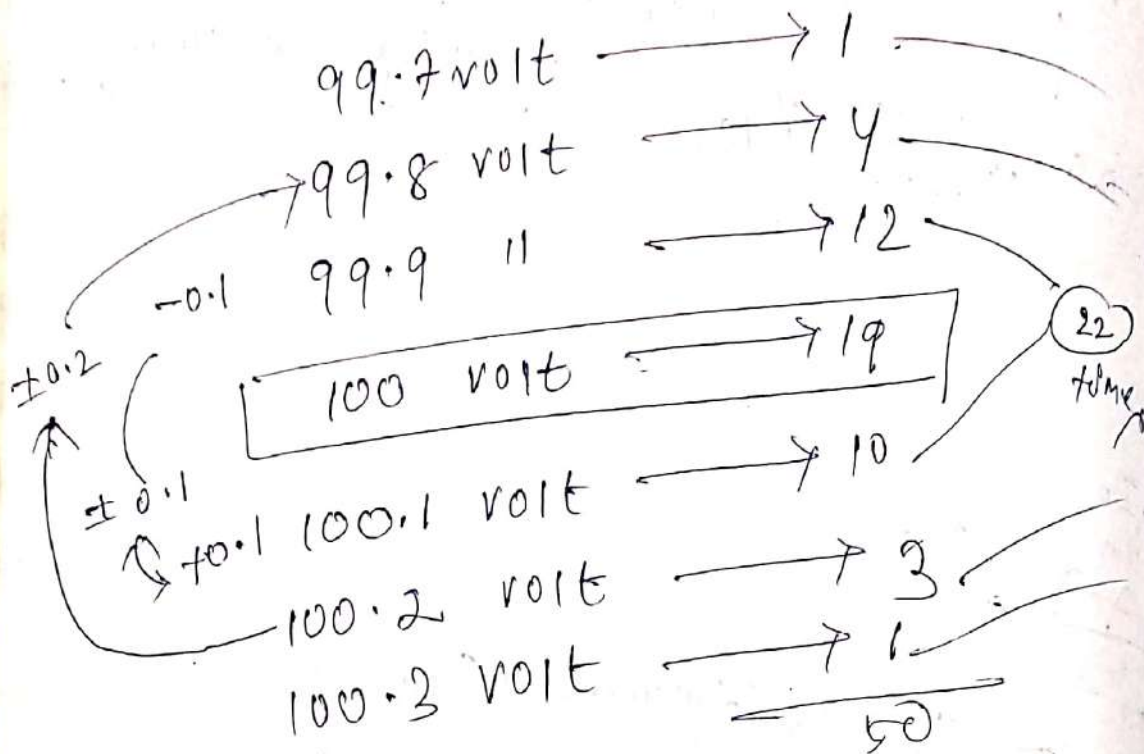 99.7 volt → 1
99.8 volt → 4
-0.1 99.9 " → 12
±0.2
100 volt → 19
22
time
±0.1
+0.1 100.1 volt → 10
100.2 volt → 3
100.3 volt → 1
50